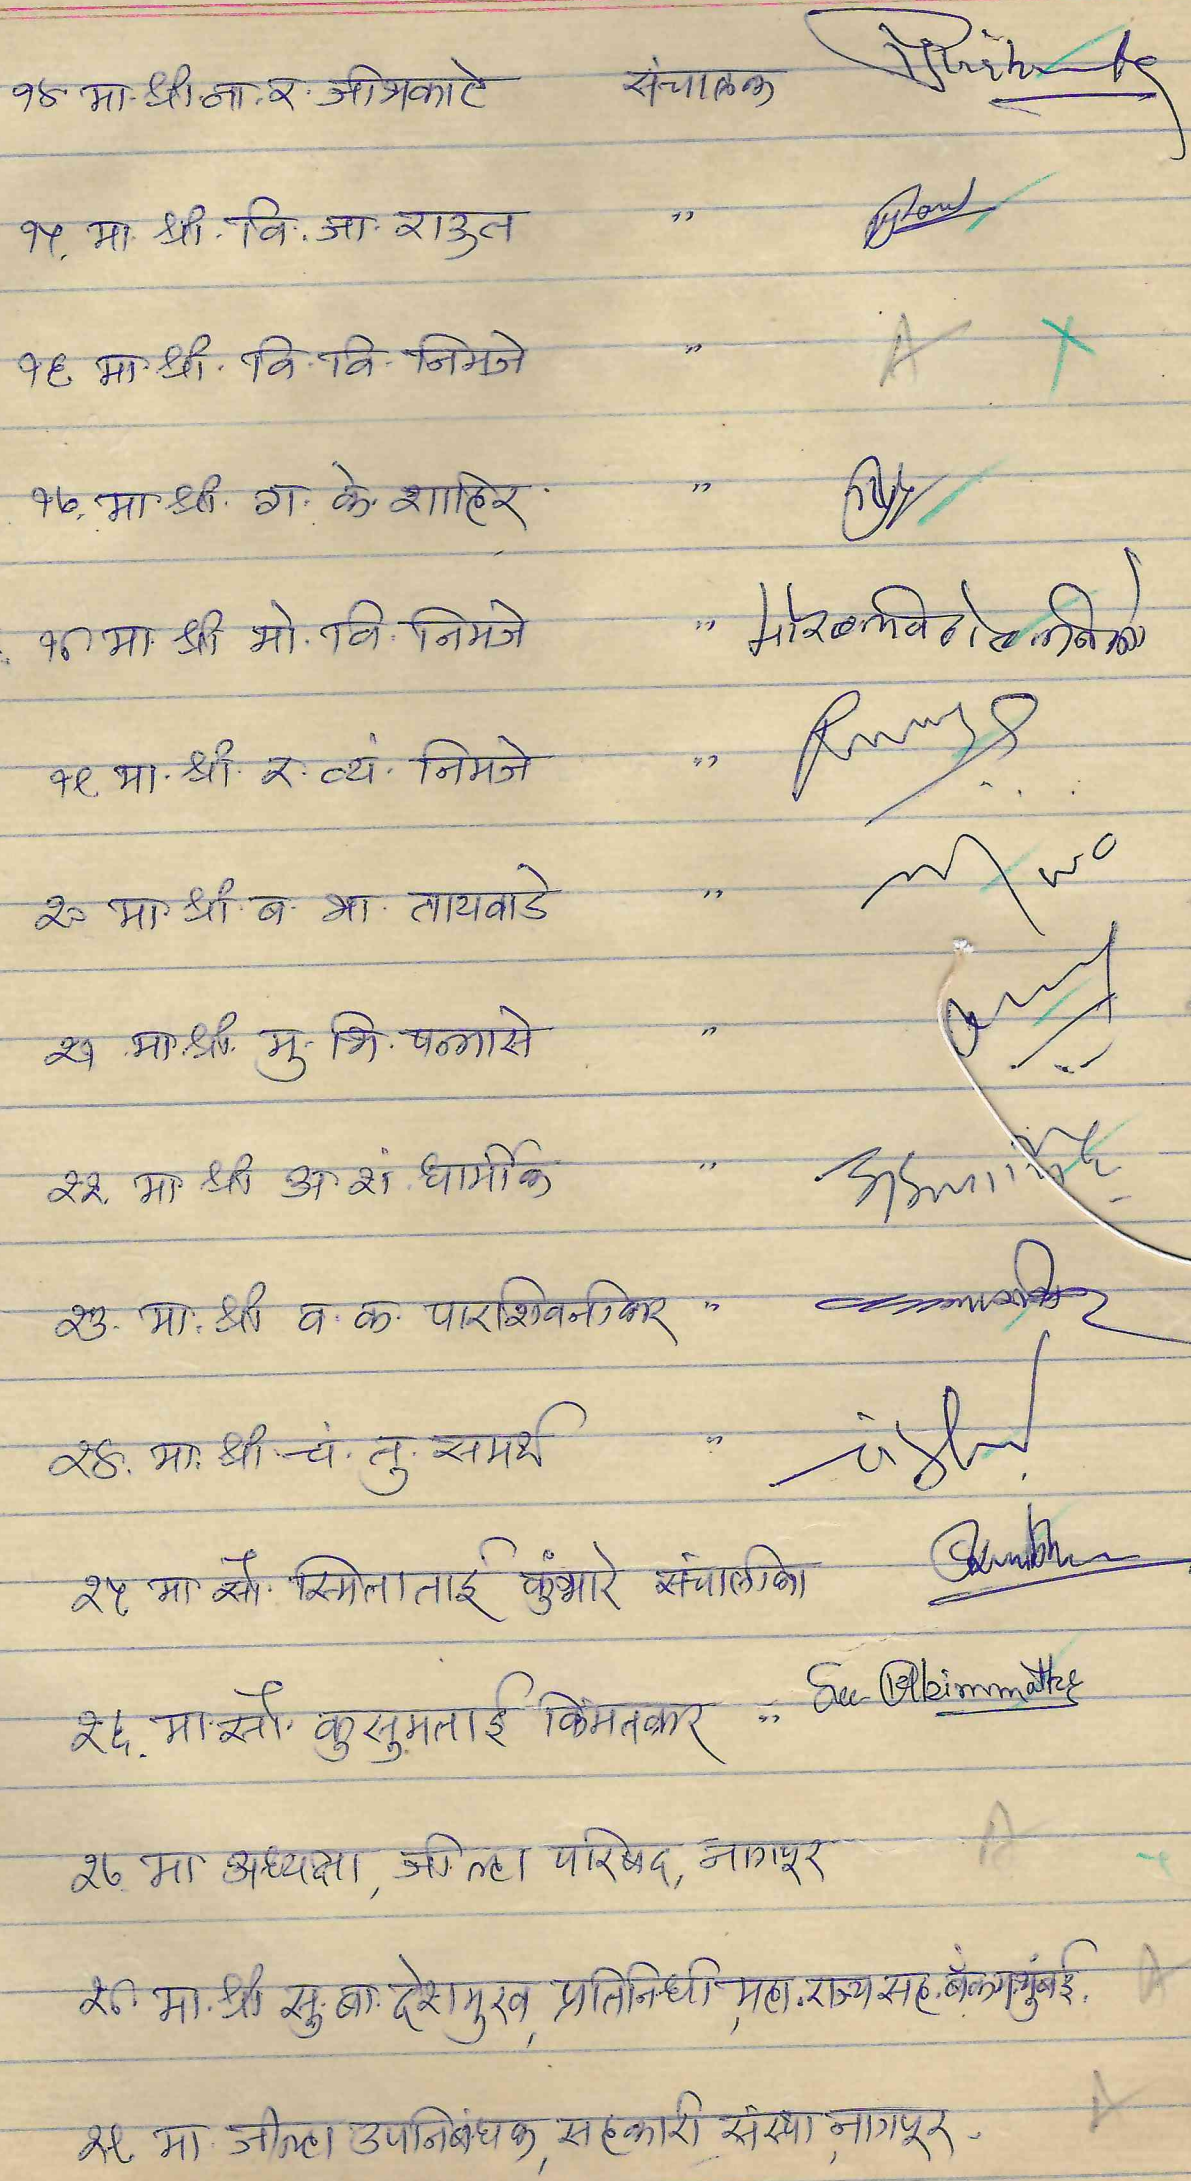 १४. मा. श्री. ना. र. जीभकाटे संचालक
१५. मा. श्री. वि. जा. राऊत "
१६. मा. श्री. वि. वि. निमजे " A X
१७. मा. श्री. ग. के. शाहिर "
१८. मा. श्री. मो. वि. निमजे "
१९. मा. श्री. र. व्यं. निमजे "
२०. मा. श्री. ब. भा. तायवाडे "
२१. मा. श्री. मु. भि. पन्नासे "
२२. मा. श्री. अ. शं. धार्मीक "
२३. मा. श्री. व. क. पारशिवनीकर "
२४. मा. श्री. चं. तु. समर्थ "
२५. मा. सौ. स्मिताताई कुंभारे संचालीका
२६. मा. सौ. कुसुमताई किंमतकर "
२७. मा. अध्यक्ष, जील्हा परिषद, नागपूर A
२८. मा. श्री. सु. बा. देशमुख, प्रतिनिधी, महा. राज्य सह. बँक मुंबई. A
२९. मा. जील्हा उपनिबंधक, सहकारी संस्था, नागपूर. A